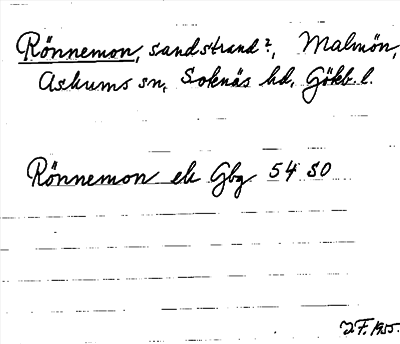 Rönnemon, sandstrand?, Malmön,
Askums sn, Soknäs hd, Gökb. l.
Rönnemon ek Gbg 54 SO